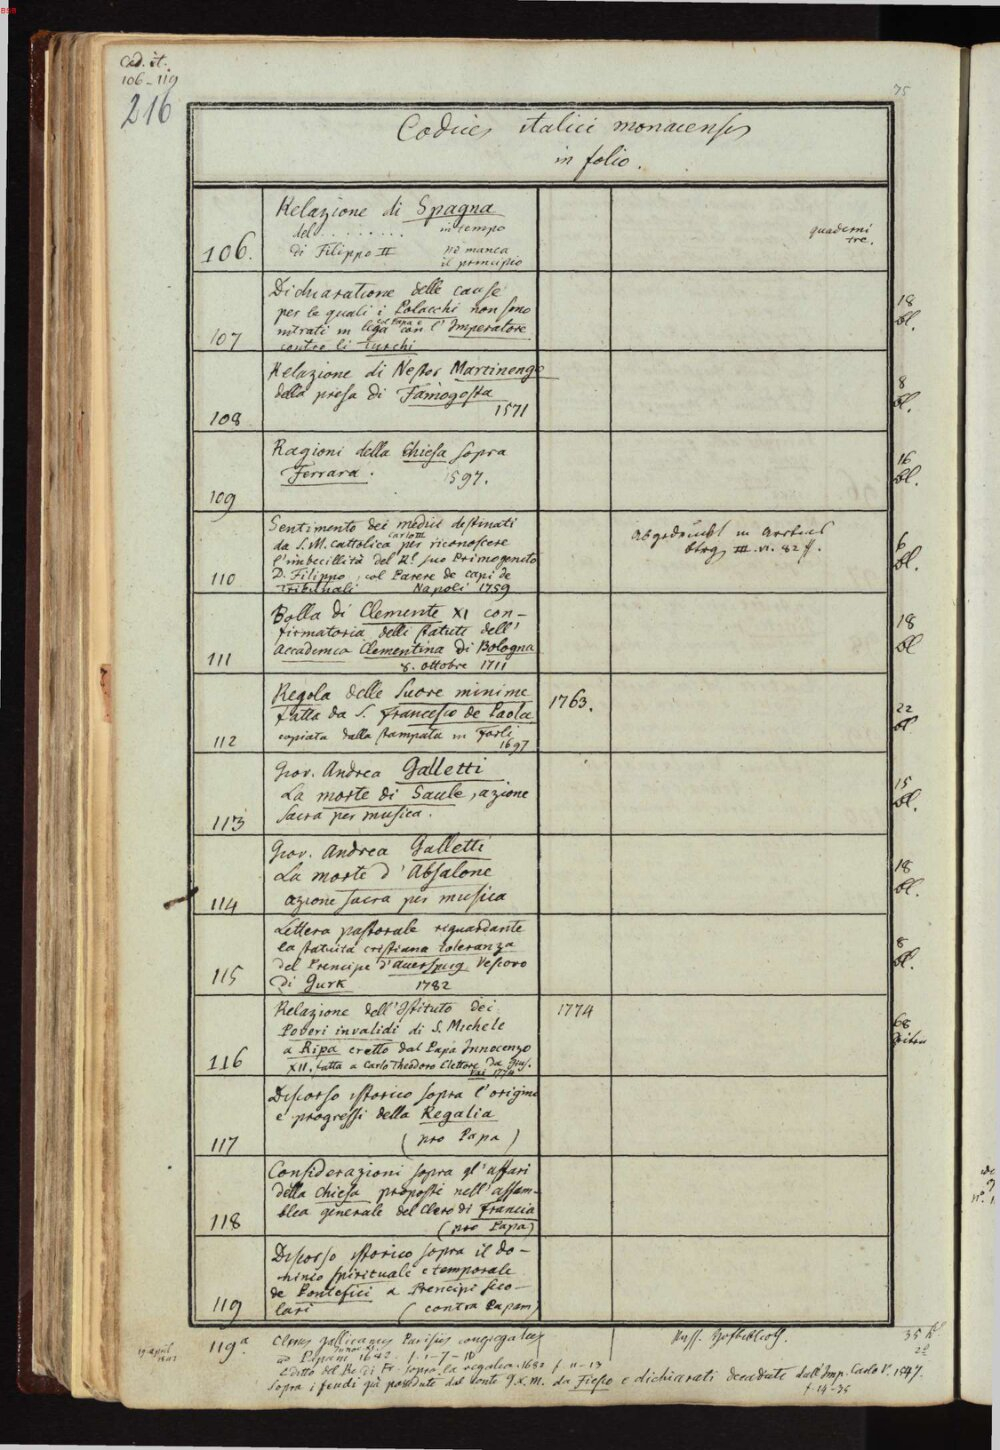 BSB
Cod. it.
106-119
216
75
Codices italici monacenses
in folio.
106.
Relazione di Spagna
del ........ in tempo
di Filippo II NB manca
il principio
quaderni
tre.
107
Dichiaratione delle cause
per le quali i Polacchi non sono
col Papa e
intrati in liga con l'Imperatore
contro li turchi
18
Bl.
108
Relazione di Nestor Martinengo
dalla presa di Famogosta
1571
8
Bl.
109
Ragioni della Chiesa sopra
Ferrara. 1597.
16
Bl.
110
Sentimento dei medici destinati
Carlo III
da S. M. cattolica per riconoscere
l'imbecillità del Rl. suo Primogenito
D. Filippo, col Parere de capi de
tribunali Napoli 1759
Abgedruckt in
III. VI. 82 ff.
6
Bl.
111
Bolla di Clemente XI con-
firmatoria delli statuti dell'
accademia Clementina di Bologna
8. ottobre 1711
18
Bl
112
Regola delle suore minime
fatta da S. Francesco de Paola
copiata dalla stampata in Forli
1697
1763.
22
Bl
113
Giov. Andrea Galletti
La morte di Saule, azione
sacra per musica.
15
Bl.
114
Giov. Andrea Galletti
La morte d'Absalone
azione sacra per musica
18
Bl.
115
Lettera pastorale riguardante
la statuita cristiana toleranza
del Principe d'Auersperg Vescovo
di Gurk 1782
8
Bl.
116
Relazione dell'Istituto dei
Poveri invalidi di S. Michele
a Ripa eretto dal Papa Innocenzo
XII. fatta a Carlo Theodoro Elettore da
1774
1774
68
Seiten
117
Discorso istorico sopra l'origine
e progressi della Regalia
(pro Papa)
118
Considerazioni sopra gl'affari
della chiesa proposti nell'assem-
blea generale del Clero di Francia
(pro Papa)
119
Discorso istorico sopra il do-
minio spirituale e temporale
de Pontefici a Principi seco-
lari (contra Papam)
119a
Clerus gallicanus Parisiis congregatus
f. 1-7-10
Editto del Re di Fr. sopra la regalia. 1682 f. 11-13
Sopra i feudi già posseduti dal conte G. x. m. da Fiesco e dichiarati decaduti dall'Imp. Carlo V. 1547.
f. 14-35
35 Bl.
2°